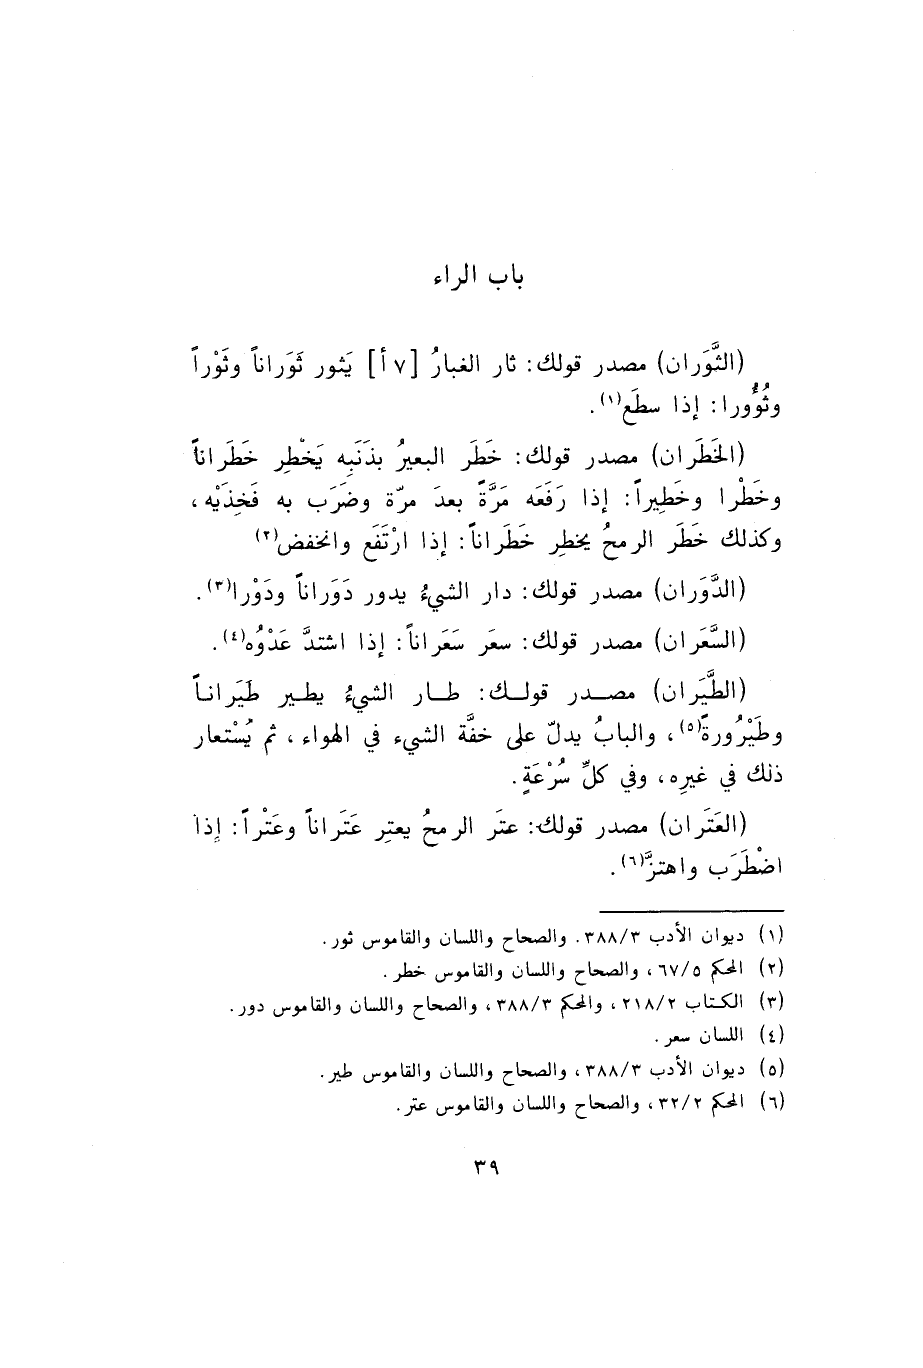 باب الراء
(الثَّوَران) مصدر قولك: ثار الغبارُ [٧ أ] يَثور ثَوَراناً وثَوْراً
وثُوُورا: إذا سطَع(١).
(الخَطَران) مصدر قولك: خَطَر البعيرُ بذَنَبِه يَخْطِر خَطَراناً
وخَطْرا وخَطِيراً: إذا رَفَعَه مَرَّةً بعدَ مرّة وضَرَب به فَخِذَيْه،
وكذلك خَطَر الرمحُ يخطِر خَطَراناً: إذا ارْتَفَع وانخفض(٢)
(الدَّوَران) مصدر قولك: دار الشيءُ يدور دَوَراناً ودَوْرا(٣).
(السَّعَران) مصدر قولك: سعَر سَعَراناً: إذا اشتدَّ عَدْوُه(٤).
(الطَّيَران) مصدر قولك: طار الشيءُ يطير طَيَراناً
وطَيْرُورةً(٥)، والبابُ يدلّ على خفَّة الشيء في الهواء، ثم يُسْتعار
ذلك في غيرِه، وفي كلِّ سُرْعَةٍ.
(العَتَران) مصدر قولك: عتَر الرمحُ يعتِر عَتَراناً وعَتْراً: إِذا
اضْطَرَب واهتزَّ(٦).
(١) ديوان الأدب ٣٨٨/٣. والصحاح واللسان والقاموس ثور.
(٢) المحكم ٦٧/٥، والصحاح واللسان والقاموس خطر.
(٣) الكتاب ٢١٨/٢، والمحكم ٣٨٨/٣، والصحاح واللسان والقاموس دور.
(٤) اللسان سعر.
(٥) ديوان الأدب ٣٨٨/٣، والصحاح واللسان والقاموس طير.
(٦) المحكم ٣٢/٢، والصحاح واللسان والقاموس عتر.
٣٩